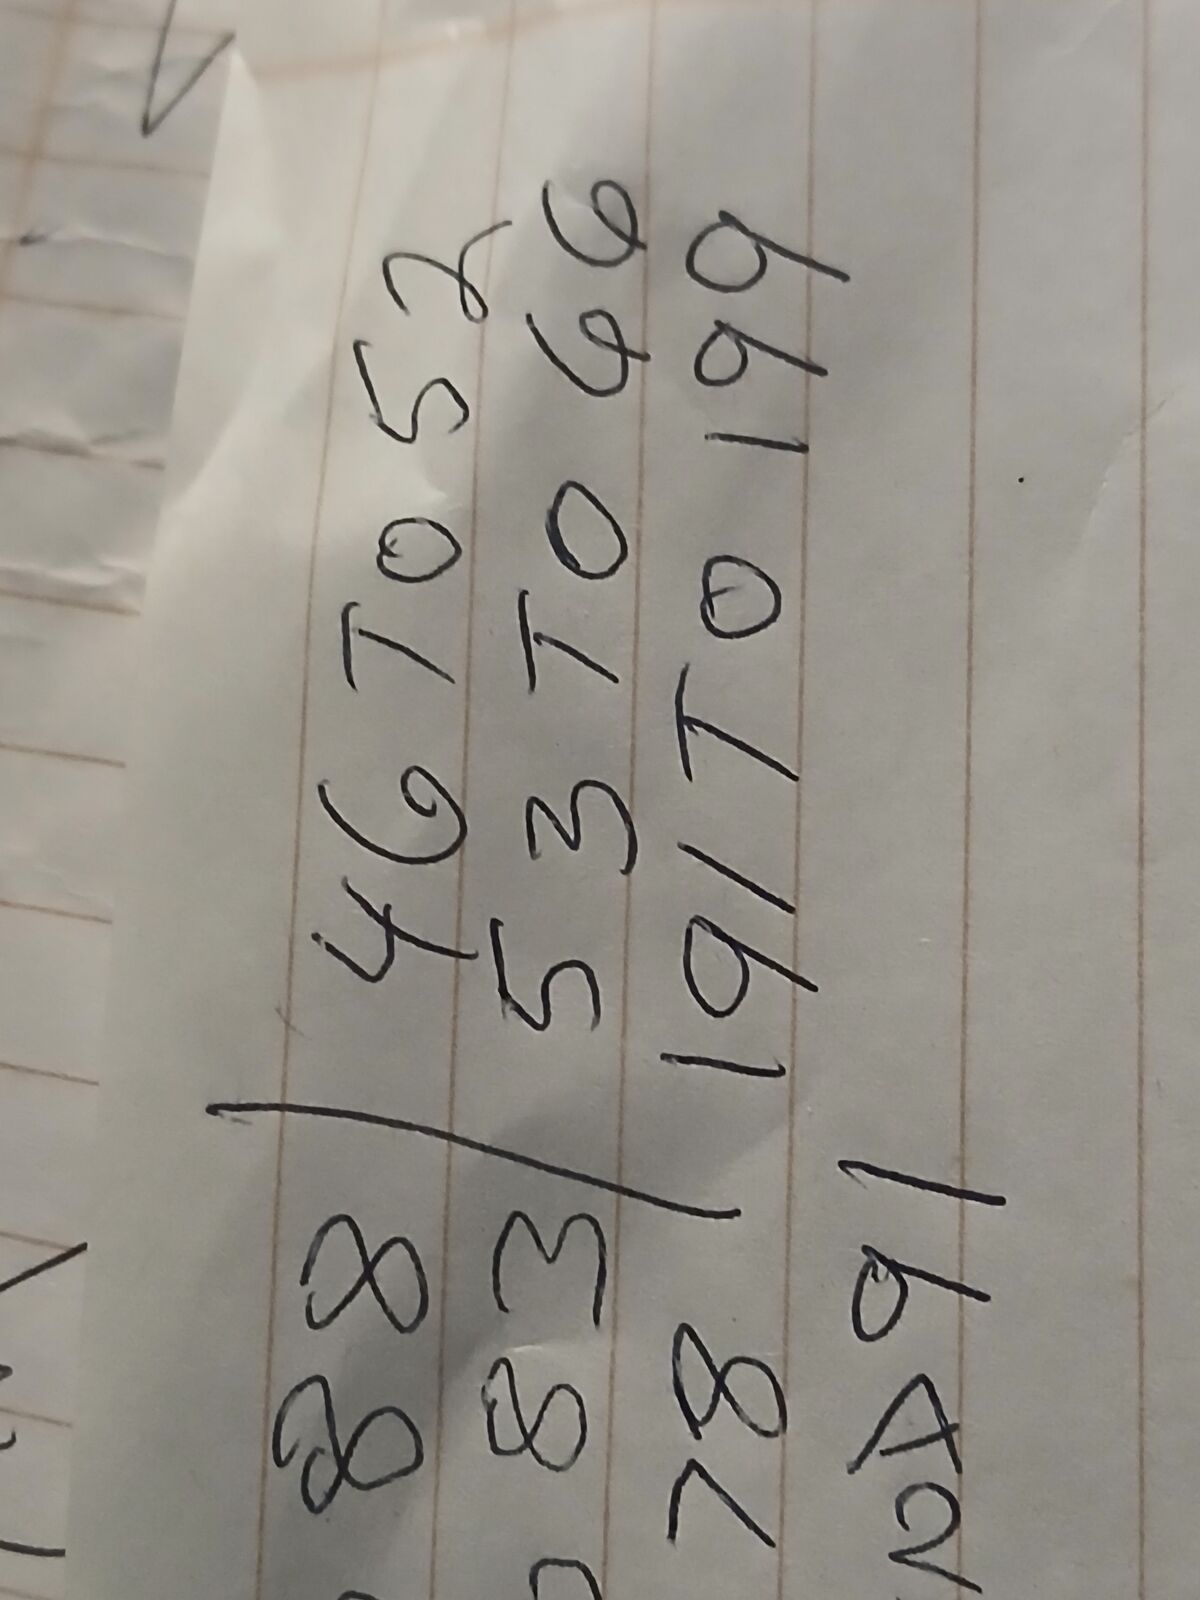 88 / 46 TO 52
83 / 53 TO 66
78 191 TO 199
291